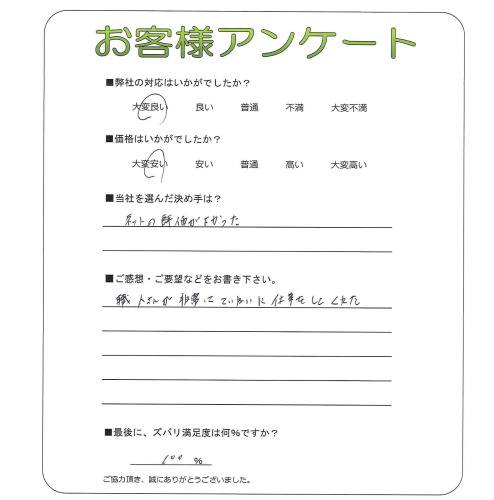 お客様アンケート
■弊社の対応はいかがでしたか？
大変良い 良い 普通 不満 大変不満
■価格はいかがでしたか？
大変安い 安い 普通 高い 大変高い
■当社を選んだ決め手は？
ネットの評価がよかった
■ご感想・ご要望などをお書き下さい。
職人さんが非常にていねいに仕事をしてくれた
■最後に、ズバリ満足度は何%ですか？
100 %
ご協力頂き、誠にありがとうございました。